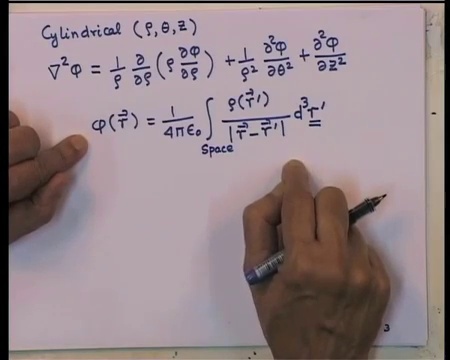 Cylindrical (ρ, θ, z)
∇²φ = 1/ρ ∂/∂ρ (ρ ∂φ/∂ρ) + 1/ρ² ∂²φ/∂θ² + ∂²φ/∂z²
φ(r⃗) = 1/4πε₀ ∫Space ρ(r⃗')/|r⃗ - r⃗'| d³r'
3